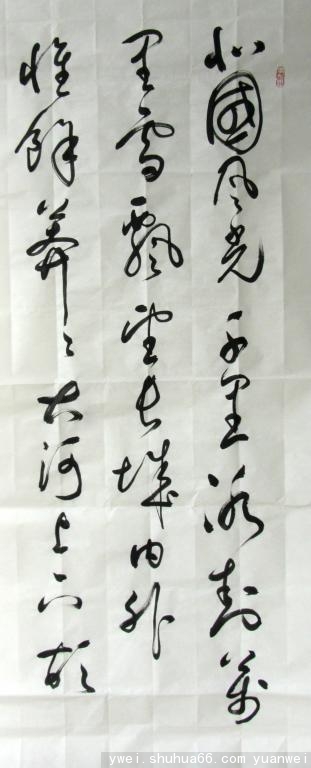 北國风光千里冰封萬
里雪飄望长城内外
惟餘莽〻大河上下頓
ywei.shuhua66.com yuanwei